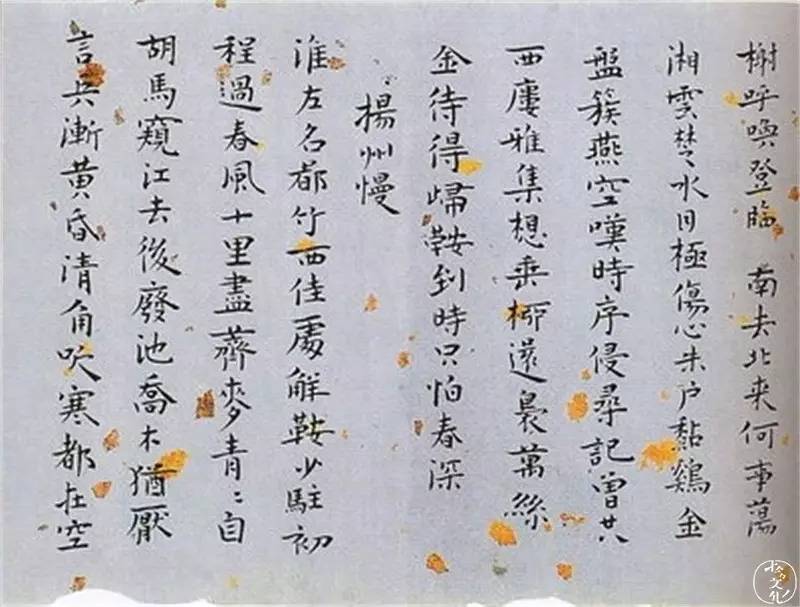 榭呼喚登臨 南去北來何事蕩
湘雲楚水目極傷心朱戶黏鷄金
盤簇燕空嘆時序侵尋記曾共
西廔雅集想垂柳還裊萬絲
金待得歸鞍到時只怕春深
揚州慢
淮左名都竹西佳處解鞍少駐初
程過春風十里盡薺麥青〻自
胡馬窺江去後廢池喬木猶厭
言兵漸黃昏清角吹寒都在空